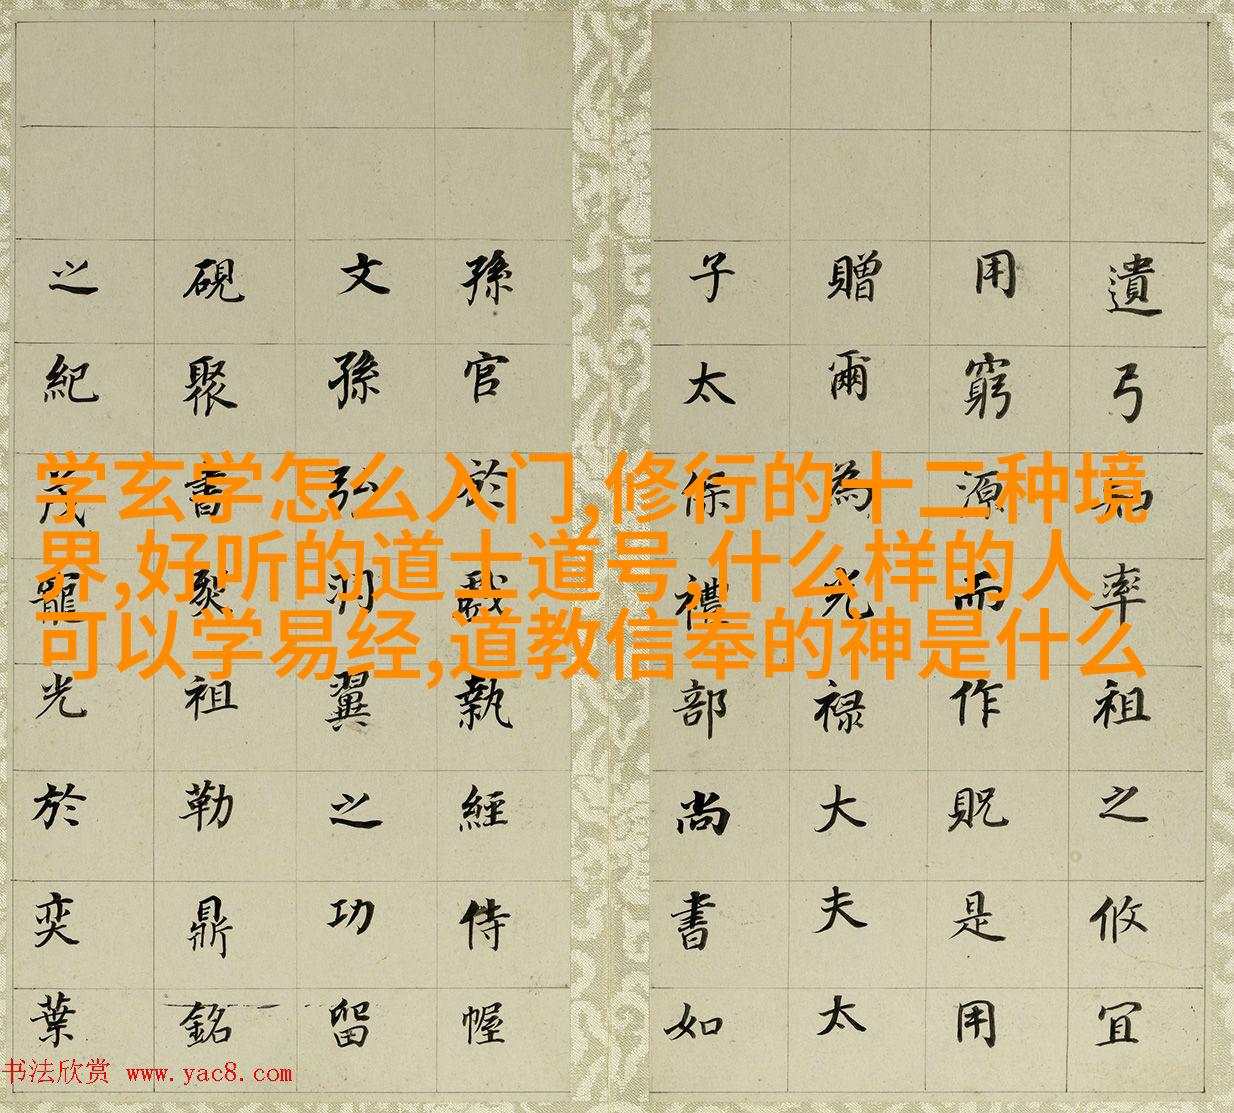 遺弓率祖之攸宜
用窮源而作貺是用
贈爾為光禄大夫太
子太保禮部尚書如
孫官於戲執經侍幄
文孫弘翼之功留
硯聚書祖勒鼎銘
之紀茂寵光於奕葉
学玄学怎么入门,修行的十二种境
界,好听的道士道号,什么样的人
可以学易经,道教信奉的神是什么
书法欣赏 www.yac8.com